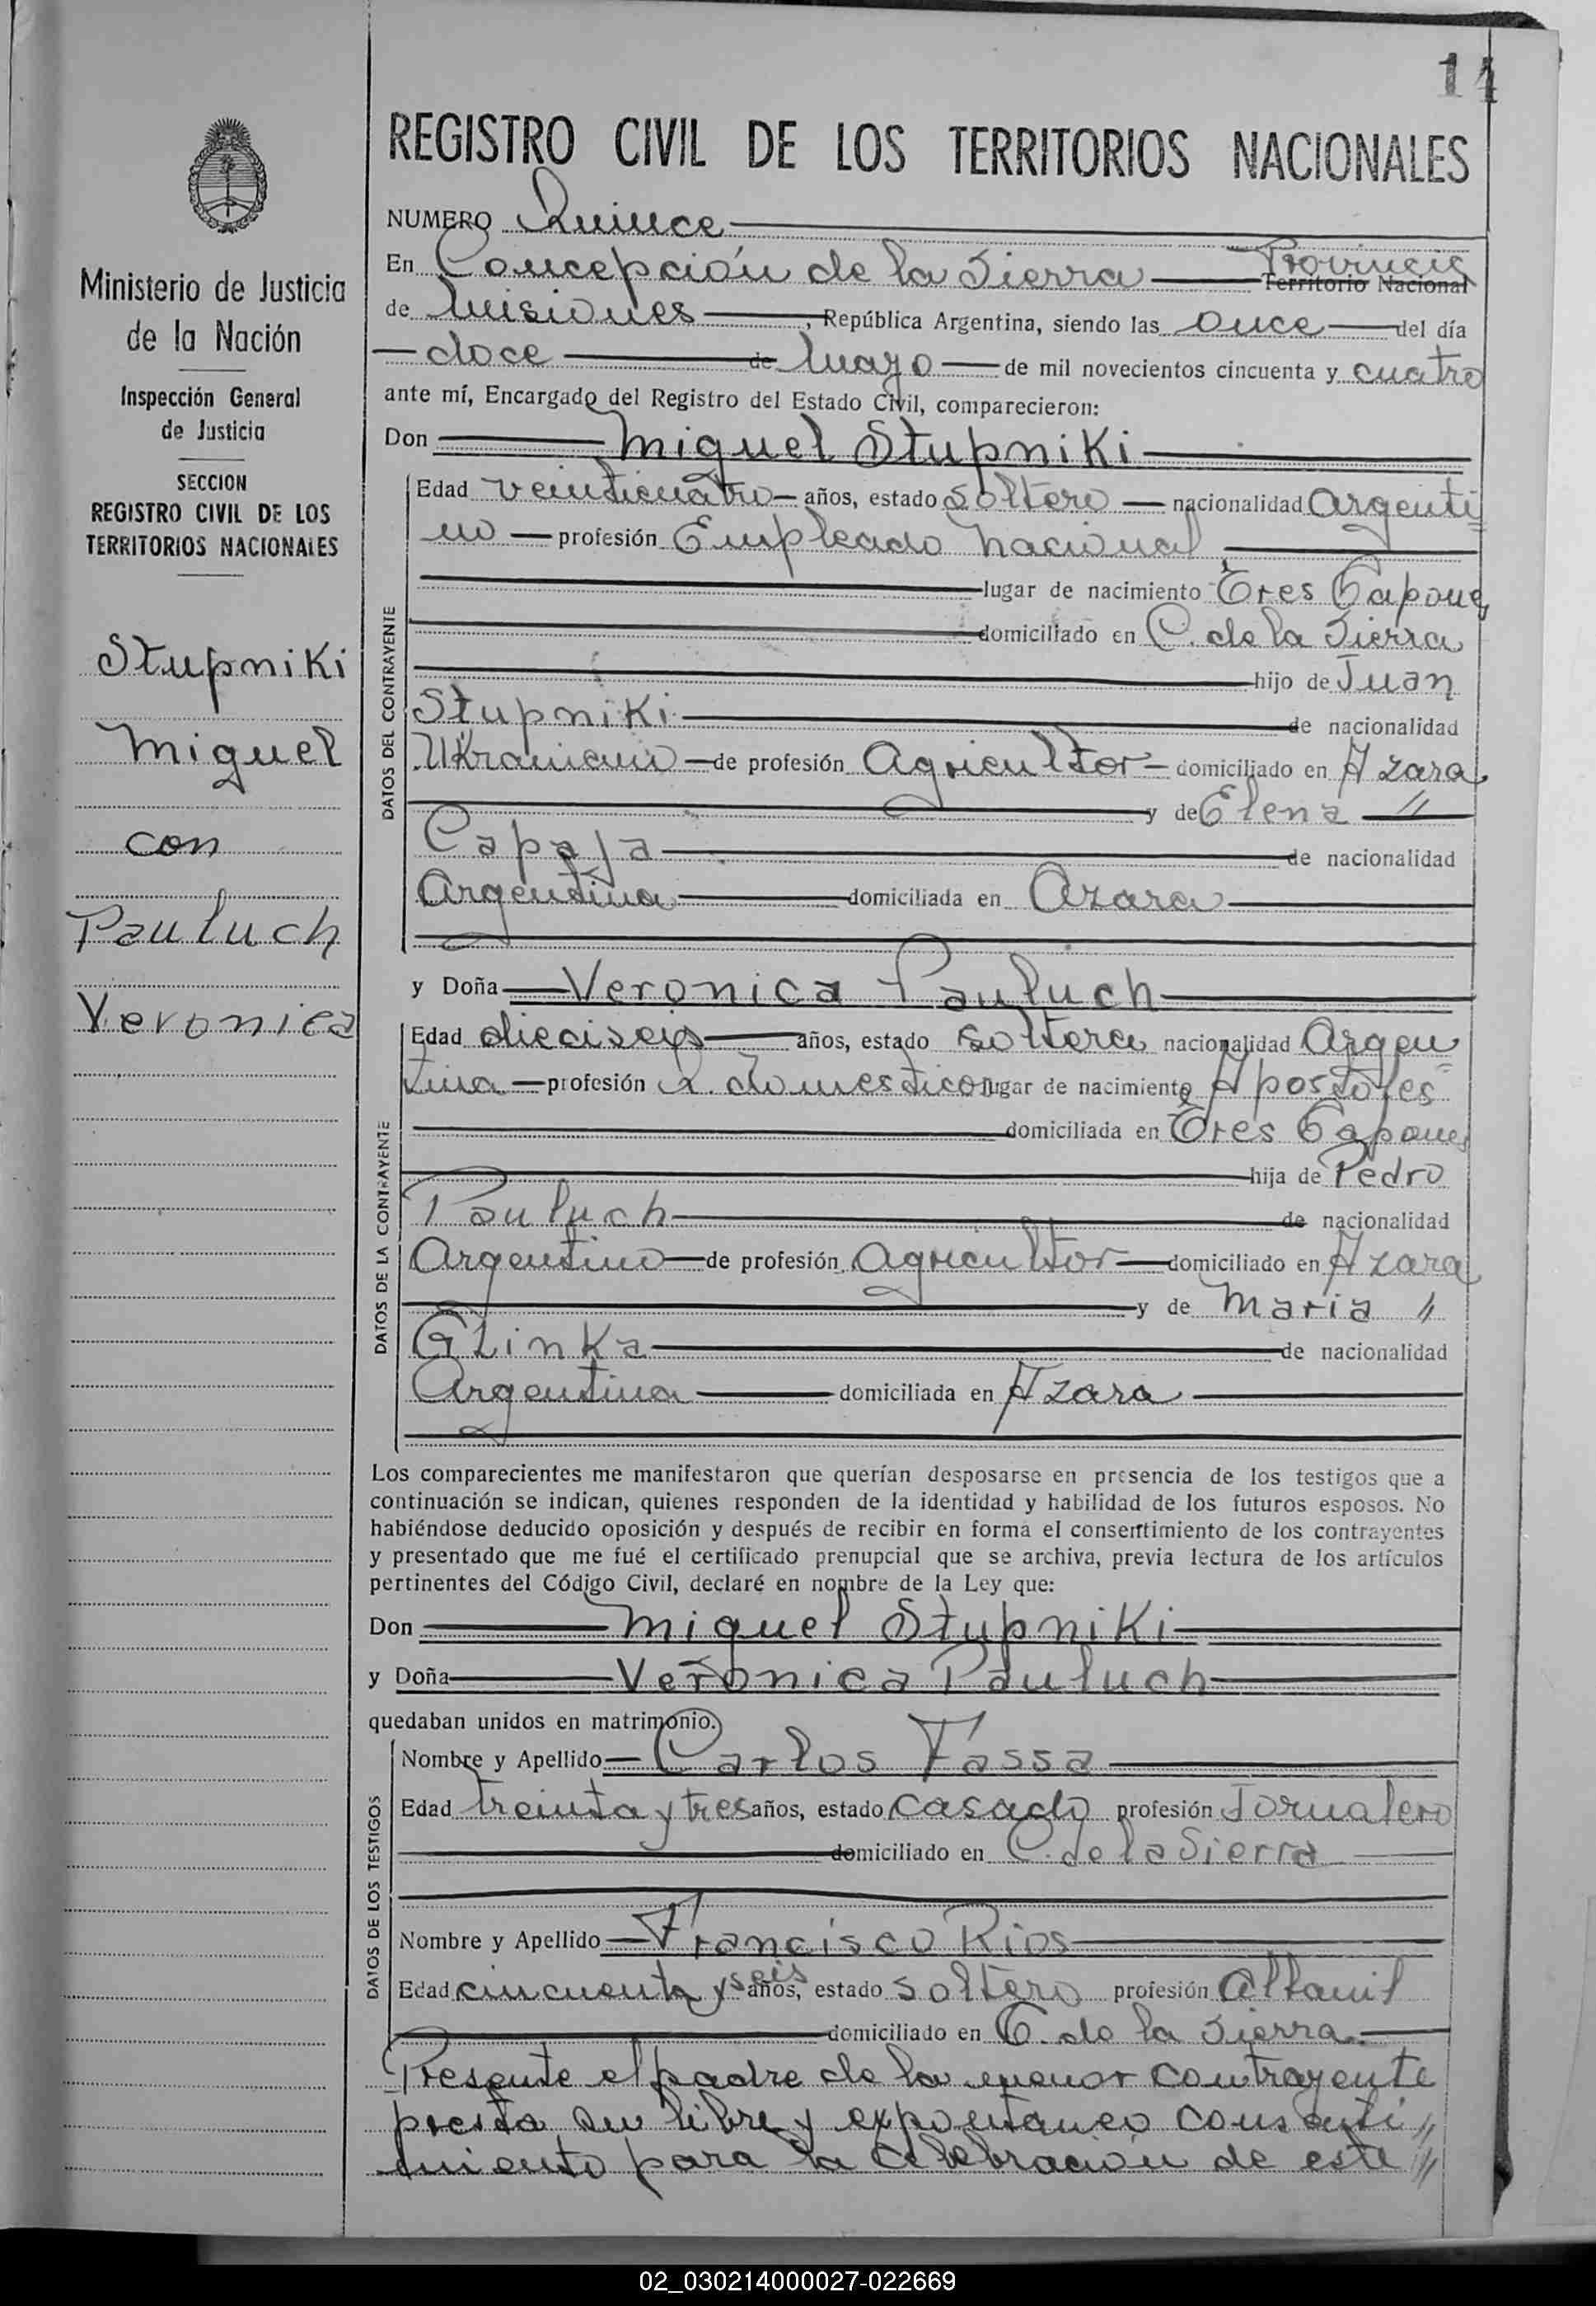 14
REGISTRO CIVIL DE LOS TERRITORIOS NACIONALES
Ministerio de Justicia
de la Nación
Inspección General
de Justicia
SECCION
REGISTRO CIVIL DE LOS
TERRITORIOS NACIONALES
Stupniki
Miguel
con
Pauluch
Veronica
NUMERO Quince
En Concepción de la Sierra Provincia
Territorio Nacional
de Misiones, República Argentina, siendo las once del día
doce de Mayo de mil novecientos cincuenta y cuatro
ante mí, Encargado del Registro del Estado Civil, comparecieron:
Don Miguel Stupniki
DATOS DEL CONTRAYENTE
Edad veinticuatro años, estado soltero nacionalidad Argenti=
no profesión Empleado Nacional
lugar de nacimiento Tres Capones
domiciliado en C. de la Sierra
hijo de Juan
Stupniki de nacionalidad
Ukraniano de profesión Agricultor domiciliado en Azara
y de Elena "
Capaja de nacionalidad
Argentina domiciliada en Azara
y Doña Veronica Pauluch
DATOS DE LA CONTRAYENTE
Edad dieciseis años, estado soltera nacionalidad Argen=
tina profesión Q. domesticos lugar de nacimiento Apostoles
domiciliada en Tres Capones
hija de Pedro
Pauluch de nacionalidad
Argentino de profesión Agricultor domiciliado en Azara
y de Maria "
Glinka de nacionalidad
Argentina domiciliada en Azara
Los comparecientes me manifestaron que querían desposarse en presencia de los testigos que a
continuación se indican, quienes responden de la identidad y habilidad de los futuros esposos. No
habiéndose deducido oposición y después de recibir en forma el consentimiento de los contrayentes
y presentado que me fué el certificado prenupcial que se archiva, previa lectura de los artículos
pertinentes del Código Civil, declaré en nombre de la Ley que:
Don Miguel Stupniki
y Doña Veronica Pauluch
quedaban unidos en matrimonio.
DATOS DE LOS TESTIGOS
Nombre y Apellido Carlos Fassa
Edad treinta y tres años, estado casado profesión Jornalero
domiciliado en C. de la Sierra
Nombre y Apellido Francisco Rios
Edad cincuenta y seis años, estado soltero profesión Albañil
domiciliado en C. de la Sierra.
Presente el padre de la menor contrayente
presta su libre y expontaneo consenti "
miento para la celebración de este "
02_030214000027-022669